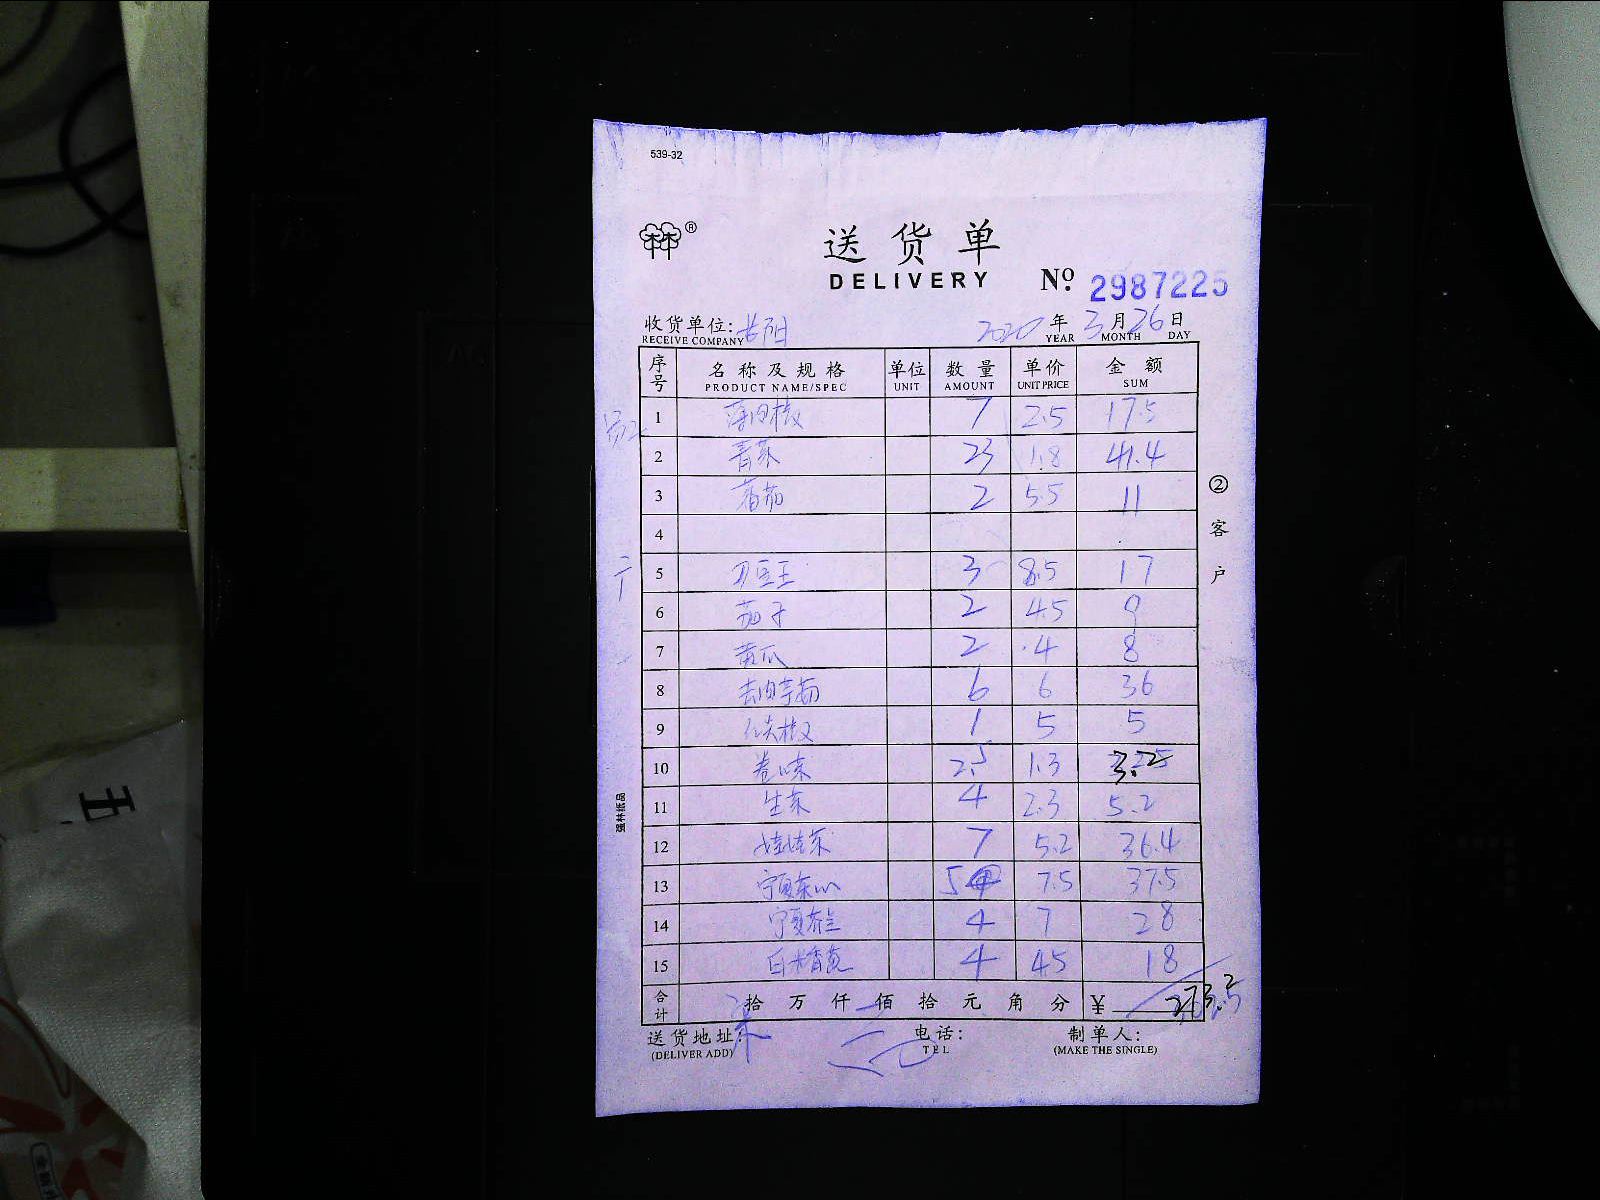 539-32
®
送货单
DELIVERY
No. 2987225
收货单位: 长阳 2020年3月26日
RECEIVE COMPANY YEAR MONTH DAY
序号 名称及规格 单位 数量 单价 金额
PRODUCT NAME/SPEC UNIT AMOUNT UNIT PRICE SUM
员工
1 薄皮椒 7 2.5 17.5
2 青菜 23 1.8 41.4
3 番茄 2 5.5 11
4
5 刀豆王 3 8.5 17
6 茄子 2 4.5 9
7 黄瓜 2 4 8
8 6 6 36
9 尖椒 1 5 5
10 2.5 1.3 3.25
11 生菜 4 2.3 5.2
12 娃娃菜 7 5.2 36.4
13 宁夏菜心 5 7.5 37.5
14 宁夏芥兰 4 7 28
15 白米苋 4 45 18
合计 拾万仟佰拾元角分 ¥ 273.2
送货地址: 电话: 制单人:
(DELIVER ADD) TEL (MAKE THE SINGLE)
②客户
强林纸品
五